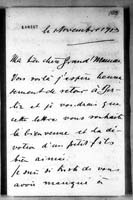 103
10 Novembre 1903
Ma bien chère Grand'Maman
Vous voilà j'espère heureu
sement de retour à
et je voudrais que
cette lettre vous souhaite
la bienvenue et la dé
votion d'un petit fils
bien aimé.
Je suis si triste de vous
avoir manqué à